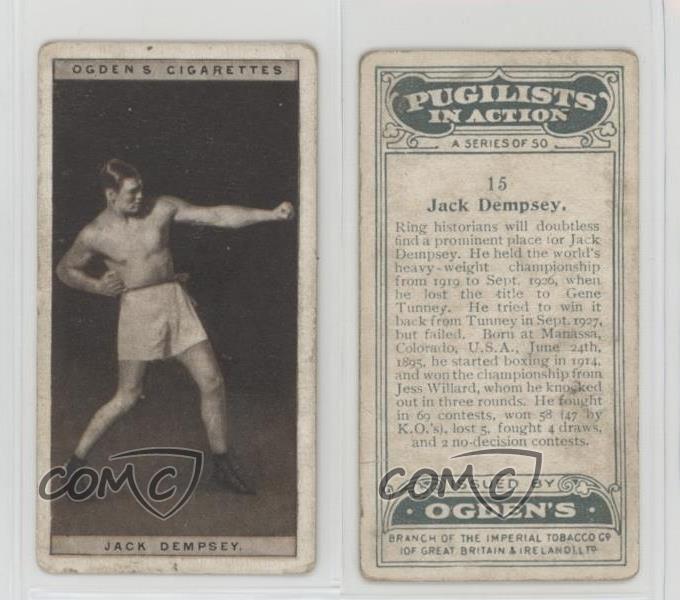 OGDEN'S CIGARETTES
JACK DEMPSEY.
COMC
PUGILISTS
IN ACTION
A SERIES OF 50
15
Jack Dempsey.
Ring historians will doubtless
find a prominent place for Jack
Dempsey. He held the world's
heavy-weight championship
from 1919 to Sept. 1926, when
he lost the title to Gene
Tunney. He tried to win it
back from Tunney in Sept. 1927,
but failed. Born at Manassa,
Colorado, U.S.A., June 24th,
1895, he started boxing in 1914,
and won the championship from
Jess Willard, whom he knocked
out in three rounds. He fought
in 69 contests, won 58 (47 by
K.O.'s), lost 5, fought 4 draws,
and 2 no-decision contests.
COMC
ISSUED BY
OGDEN'S
BRANCH OF THE IMPERIAL TOBACCO CO
(OF GREAT BRITAIN & IRELAND), LTD